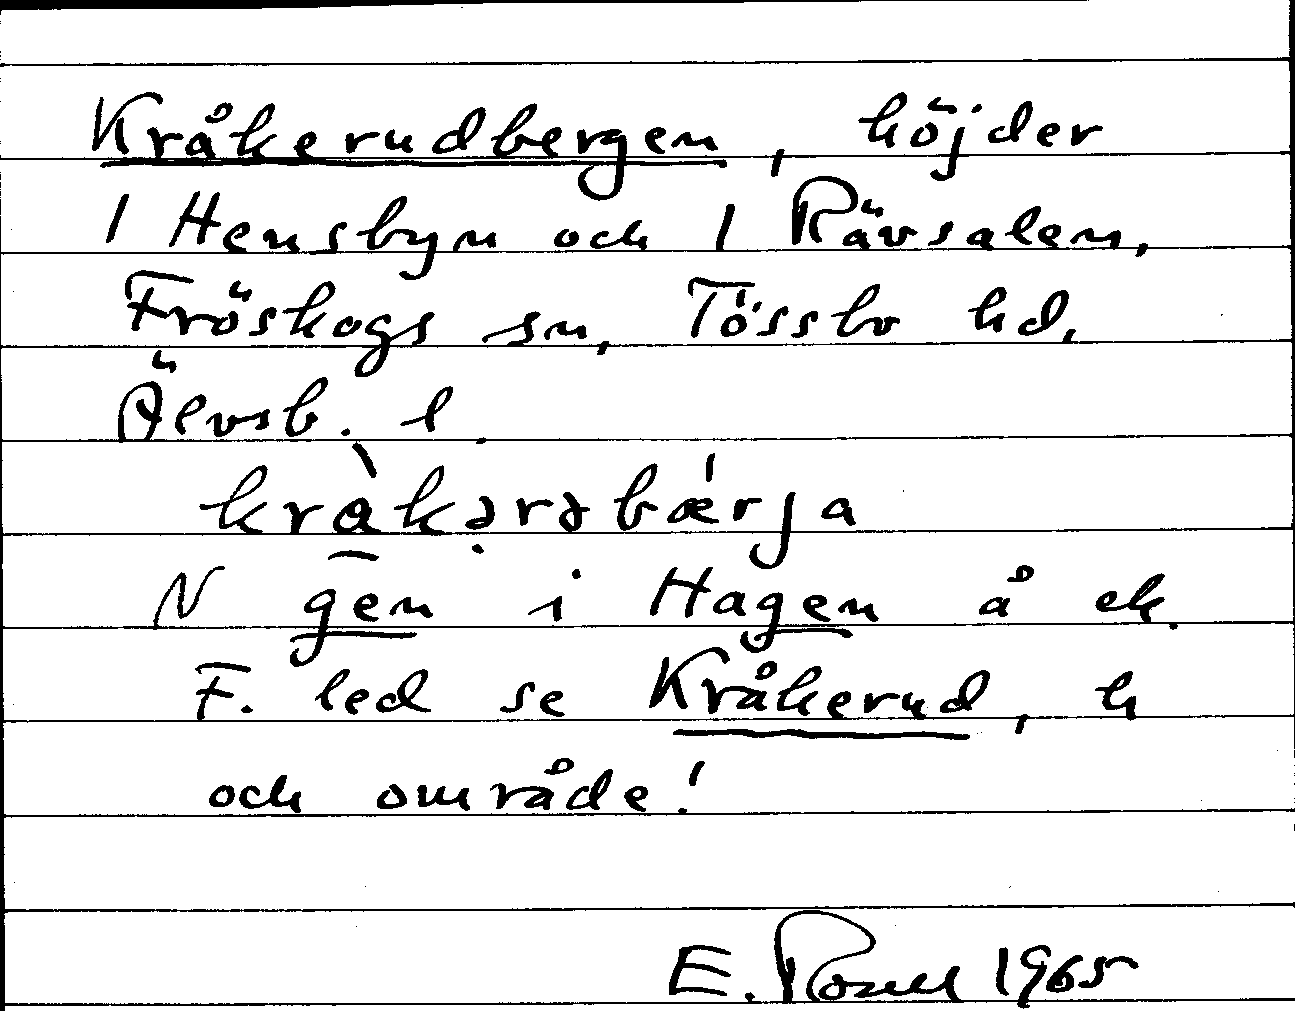 Kråkerudbergen, höjder
1 Hensbyn och 1 Rävsalen,
Fröskogs sn, Tössbo hd,
Älvsb. l.
kràkərəbǽrja
N gen i Hagen å ek.
F. led se Kråkerud, h
och område!
E. 1965